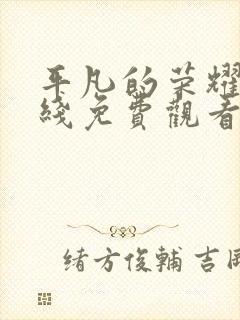 平凡的荣耀
綫免費觀看
緒方俊輔 吉岡